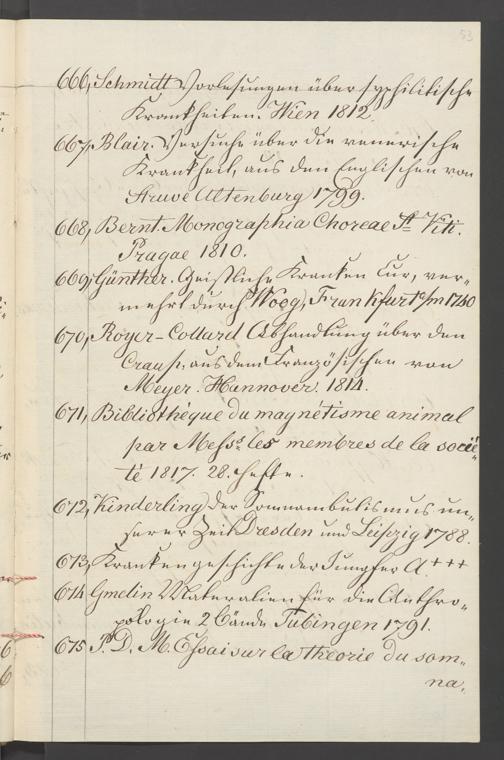 53
666, Schmidt Vorlesungen über syphilitische
Krankheiten. Wien 1812.
667, Blair. Versuche über die venerische
Krankheit, aus den Englischen von
Struve Altenburg 1799.
668, Bernt. Monographia Choreae St Viti.
Pragae 1810.
669, Günther. Geistliche Kranken Cur, ver„
mehrt durch Woog, Frankfurt a/m 1740
670, Royer-Collard Abhandlung über den
Croup, aus dem Französischen von
Meyer. Hannover. 1814.
671, Bibliothéque du magnétisme animal
par Mess. les membres de la socié„
té 1817. 28. Hefte.
672, Kinderling der Somnambulismus un„
serer Zeit Dresden und Leipzig 1788.
673, Krankengeschichte der Jungfer A+++
674 Gmelin Materalien für die Anthro„
pologie 2 Bände Tübingen 1791.
675 P. D. M. Essai sur la theorie du som„
na„